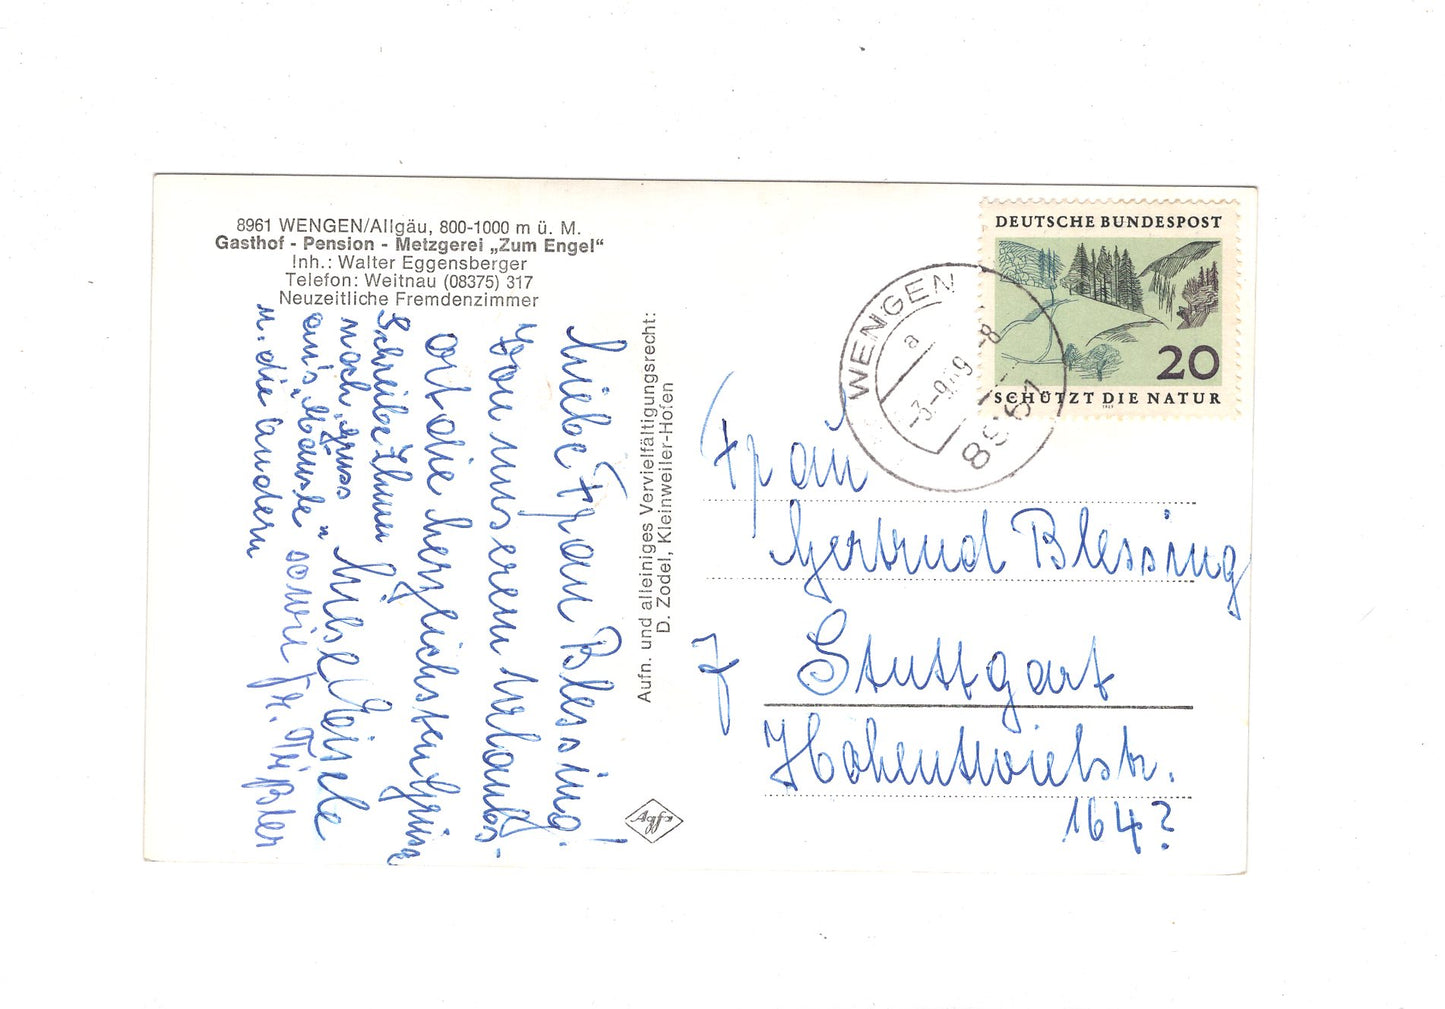 8961 WENGEN/Allgäu, 800-1000 m ü. M.
Gasthof - Pension - Metzgerei „Zum Engel“
Inh.: Walter Eggensberger
Telefon: Weitnau (08375) 317
Neuzeitliche Fremdenzimmer
Liebe Frau Blessing!
Von unserem Urlaubs-
ort die herzlichsten Grüsse
Schreibe Ihnen
noch, Gruss
Liesel Eisele
an's „Mausle“ sowie Fr. Teißler
u. die andern
Aufn. und alleiniges Vervielfältigungsrecht:
D. Zodel, Kleinweiler-Hofen
Agfa
WENGEN
a
-3.-9.69-8
8961
DEUTSCHE BUNDESPOST
20
SCHÜTZT DIE NATUR
1969
Frau
Gertrud Blessing
7 Stuttgart
Hohentwielstr.
164?